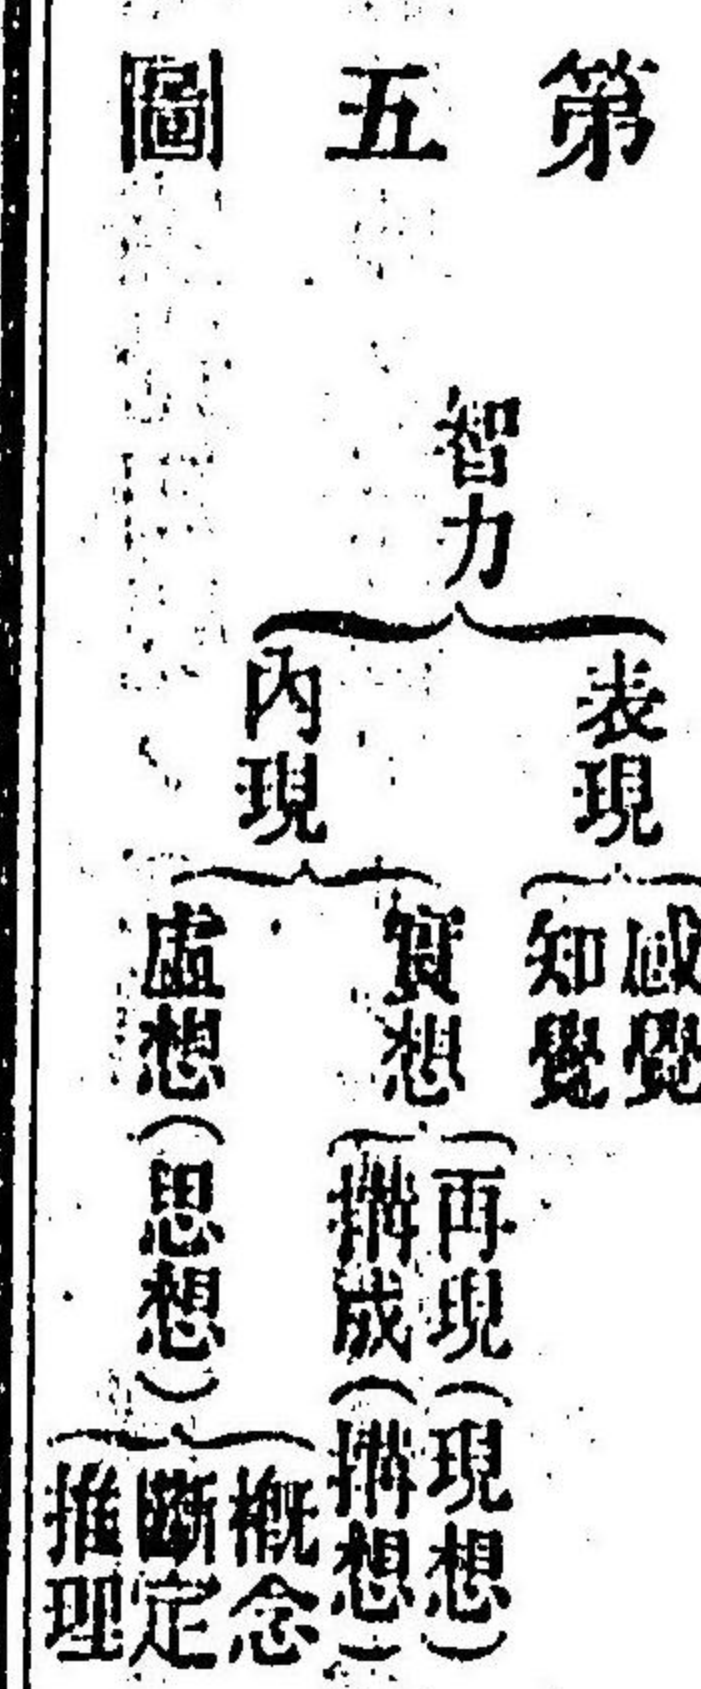 第五圖
智力
表現
感覺
知覺
內現
實想
再現(現想)
搆成(搆想)
虛想(思想)
概念
斷定
推理